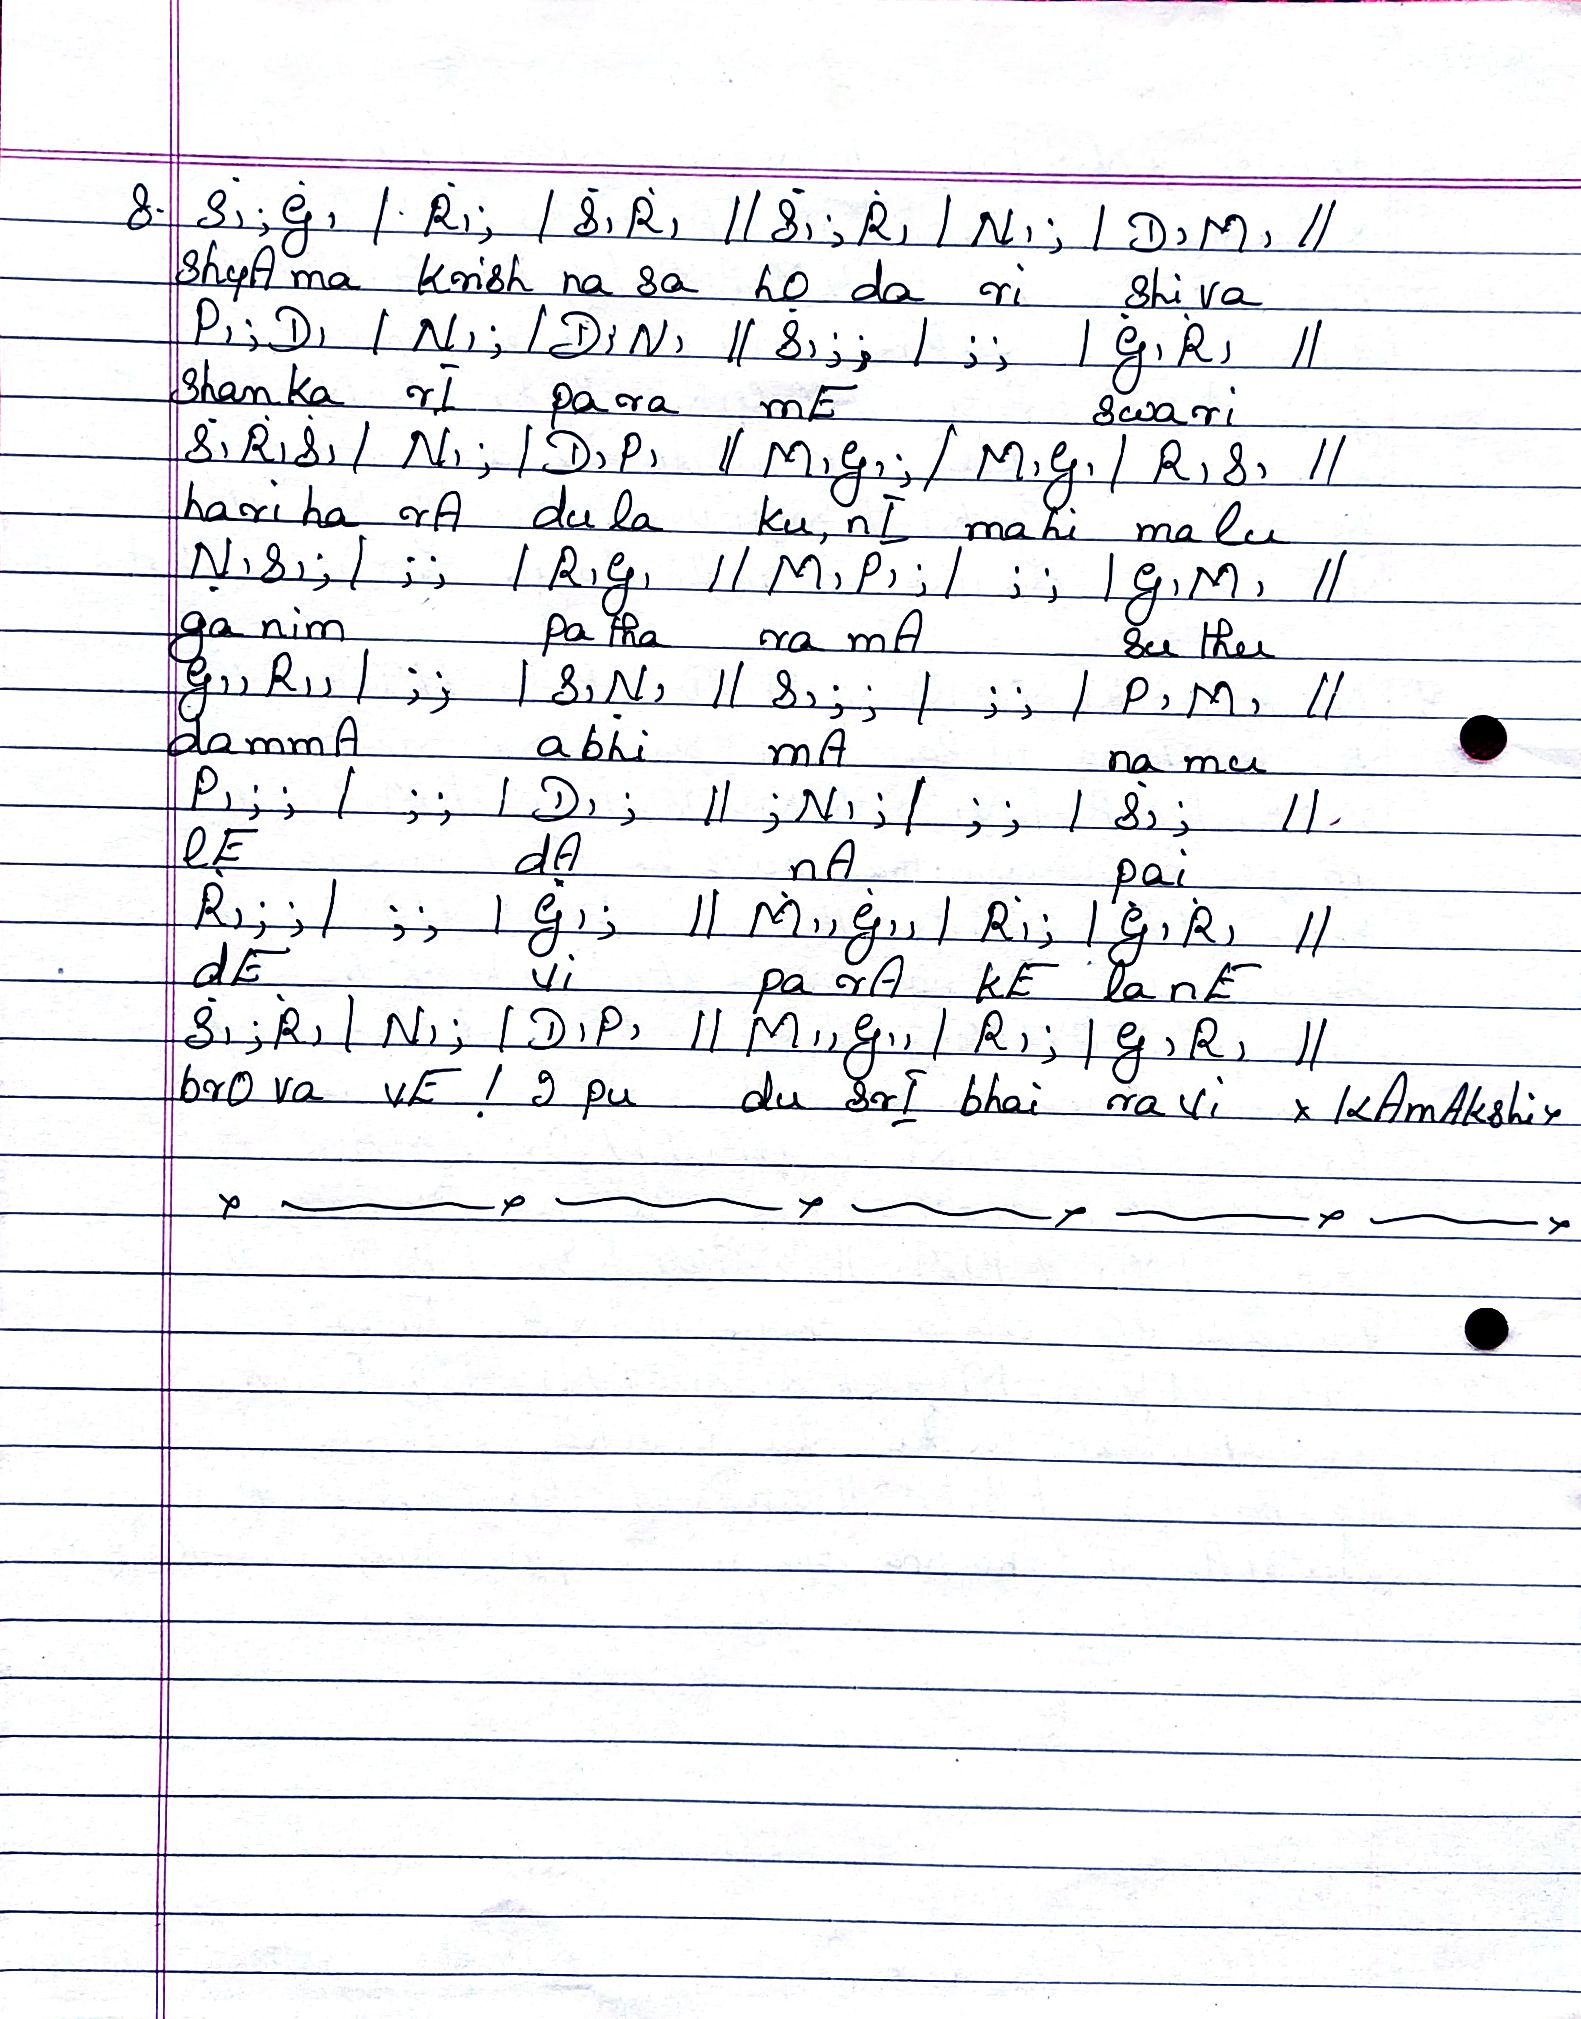 8. Ṡ,;Ġ, | Ṙ,; | Ṡ,Ṙ, || Ṡ,;Ṙ, | N,; | D,M, ||
shyAma krish na sa hO da ri shiva
P,;D, | N,; | D,N, || Ṡ,;; | ;; | Ġ,Ṙ, ||
shanka rI para mE swari
Ṡ,Ṙ,Ṡ, | N,; | D,P, || M,G,; | M,G, | R,S, ||
hariha rA dula ku, nI mahi malu
Ṇ,S,; | ;; | R,G, || M,P,; | ;; | G,M, ||
ganim patha ra mA su thu
G,,R,, | ;; | S,Ṇ, || S,;; | ;; | P,M, ||
dammA abhi mA na mu
P,;; | ;; | D,; || ;N,; | ;; | Ṡ,; ||
lE dA nA pai
Ṙ,;; | ;; | Ġ,; || Ṁ,,Ġ,, | Ṙ,; | Ġ,Ṙ, ||
dE vi pa rA kE la nE
Ṡ,;Ṙ, | N,; | D,P, || M,,G,, | R,; | G,R, ||
brOva vE ! I pu du srI bhai ra vi x KAmAkshi x